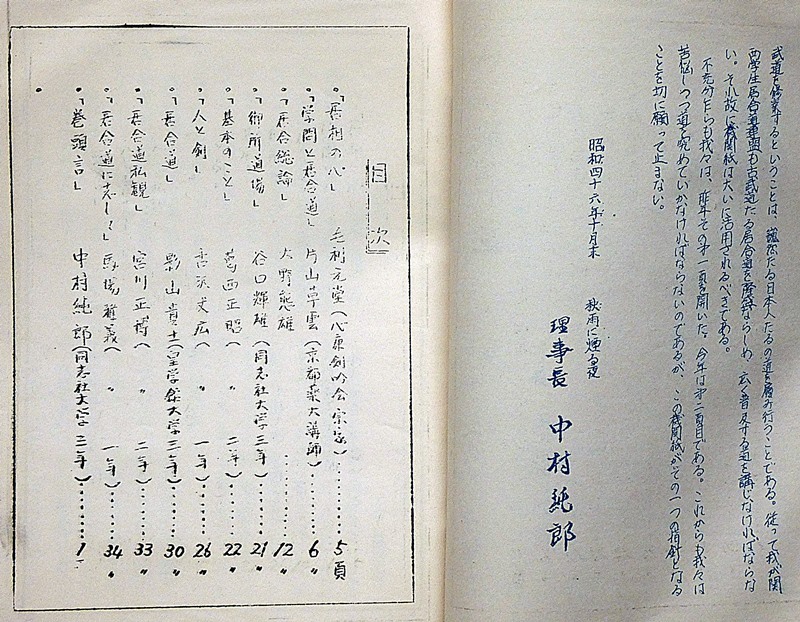 武道を修業するということは、たる日本人たるの道を履み行うことである。従って我が関
西学生居合道連盟も古武道たる居合道をならしめ、広く普及する道を講じなければならな
い。それ故に機関紙は大いに活用されるべきである。
不充分ながらも我々は、昨年その才一頁を開いた。今年は才二頁目である。これからも我々は
苦悩しつつ道を究めていかなければならないのであるが、この機関紙がその一つの指針となる
ことを切に願って止まない。
昭和四十六年十月末
秋雨に煙る夜
理事長 中村純郎
目次
・「居相の心」 毛利元堂(心原剣吟会宗家)・・・・・5頁
・「学問と居合道」 片山草雲(京都薬大講師)・・・・・6〃
・「居合総論」 大野熊雄・・・・・12〃
・「御前道場」 谷口輝雄(同志社大学三年)・・・・・21〃
・「基本のこと」 葛西正昭(〃 二年)・・・・・22〃
・「人と剣」 丈広(〃 一年)・・・・・26〃
・「居合道」 影山貴士(皇学館大学三年)・・・・・30〃
・「居合道私観」 宮川正博(〃 二年)・・・・・33〃
・「居合道に志して」 馬場雅義(〃 一年)・・・・・34〃
・「巻頭言」 中村純郎(同志社大学三年)・・・・・1〃